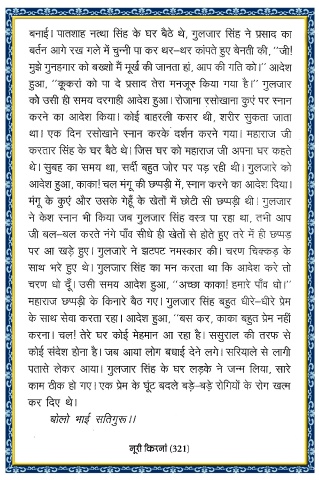 बनाई। पातशाह नत्था सिंह के घर बैठे थे, गुलजार सिंह ने प्रसाद का
बर्तन आगे रख गले में चुन्नी पा कर थर–थर कांपते हुए बेनती की, “जी!
मुझे गुनहगार को बख्शो मैं मूर्ख की जानता हां, आप की गति को।” आदेश
हुआ, “कूकरां को पा दे प्रसाद तेरा मनजूर किया गया है।” गुलजार
को उसी ही समय दरगाही आदेश हुआ। रोजाना रसोखाना कुएं पर स्नान
करने का आदेश किया। कोई बाहरली कसर थी, शरीर सुकता जाता
था। एक दिन रसोखाने स्नान करके दर्शन करने गया। महाराज जी
करतार सिंह के घर बैठे थे। जिस घर को महाराज जी अपना घर कहते
थे। सुबह का समय था, सर्दी बहुत जोर पर पड़ रही थी। गुलजारे को
आदेश हुआ, काका! चल मंगू की छप्पड़ी में, स्नान करने का आदेश दिया।
मंगू के कुएं और उसके गेहूँ के खेतों में छोटी सी छप्पड़ी थी। गुलजार
ने केश स्नान भी किया जब गुलजार सिंह वस्त्र पा रहा था, तभी आप
जी बल–बल करते नंगे पाँव सीधे ही खेतों से होते हुए तरे में ही छप्पड़
पर आ खड़े हुए। गुलजारे ने झटपट नमस्कार की। चरण चिक्कड़ के
साथ भरे हुए थे। गुलजार सिंह का मन करता था कि आदेश करे तो
चरण धो दूँ। उसी समय आदेश हुआ, “अच्छा काका! हमारे पाँव धो।”
महाराज छप्पड़ी के किनारे बैठ गए। गुलजार सिंह बहुत धीरे–धीरे प्रेम
के साथ सेवा करता रहा। आदेश हुआ, “बस कर, काका बहुत प्रेम नहीं
करना। चल! तेरे घर कोई मेहमान आ रहा है। ससुराल की तरफ से
कोई संदेश होना है। जब आया लोग बधाई देने लगे। सरियाले से लागी
पतासे लेकर आया। गुलजार सिंह के घर लड़के ने जन्म लिया, सारे
काम ठीक हो गए। एक प्रेम के घूंट बदले बड़े–बड़े रोगियों के रोग खत्म
कर दिए थे।
बोलो भाई सतिगुरू।।
नूरी किरनां (321)